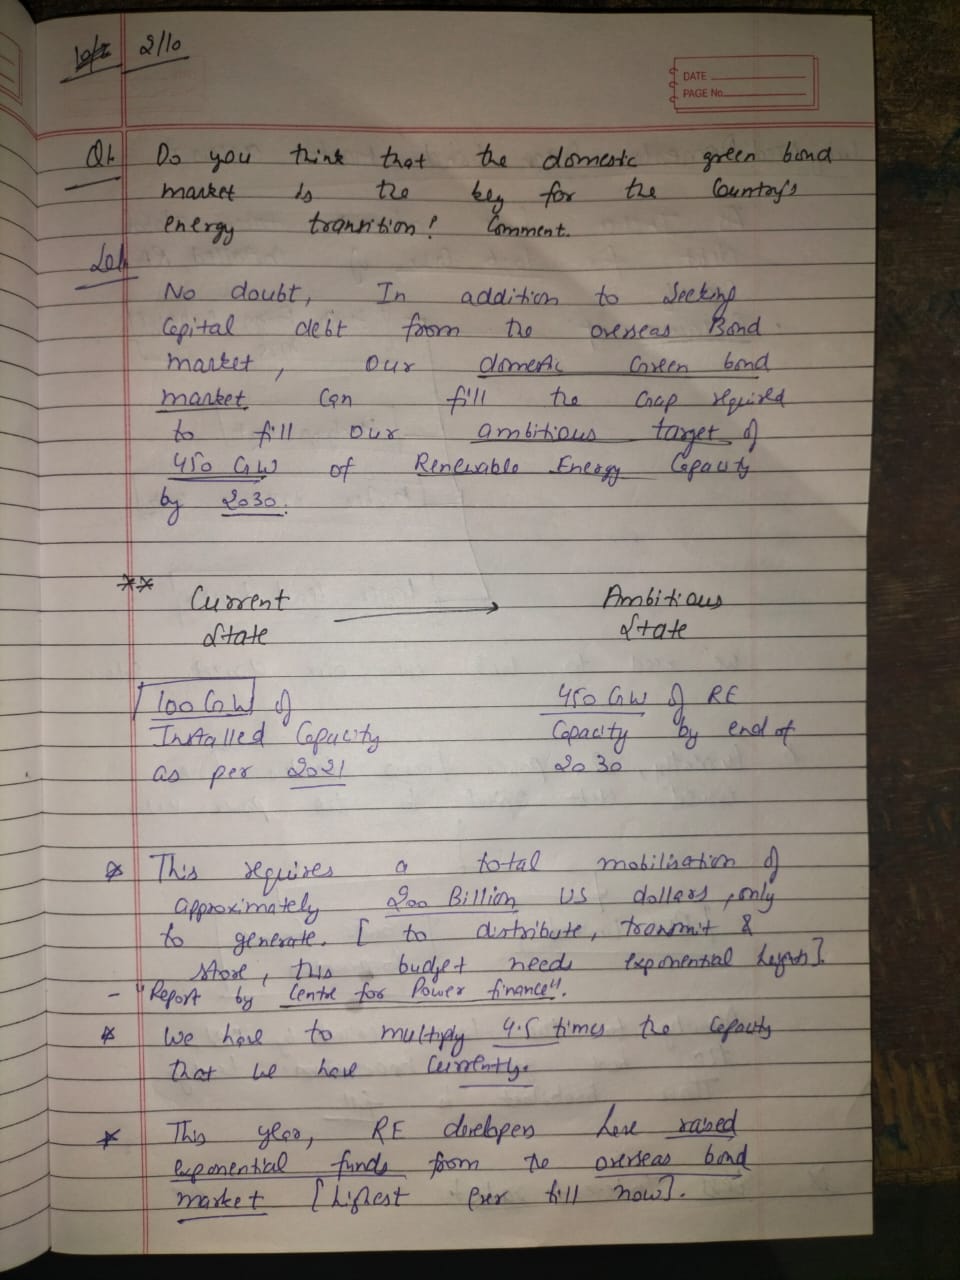 2/10
DATE
PAGE No.
Q1. Do you think that the domestic green bond
market is the key for the Country's
energy transition? Comment.
Sol.
No doubt, In addition to Seeking
Capital debt from the overseas Bond
market, our domestic Green bond
market can fill the Gap required
to fill our ambitious target of
450 GW of Renewable Energy Capacity
by 2030.
** Current → Ambitious
State State
100 GW of 450 GW of RE
Installed Capacity Capacity by end of
as per 2021 2030
* This requires a total mobilisation of
approximately 200 Billion US dollars, only
to generate. [to distribute, transmit &
store, this budget needs exponential].
- "Report by Centre for Power finance".
* We have to multiply 4.5 times the Capacity
that we have Currently.
* This year, RE developers have raised
exponential funds from the overseas bond
market [highest ever till now].